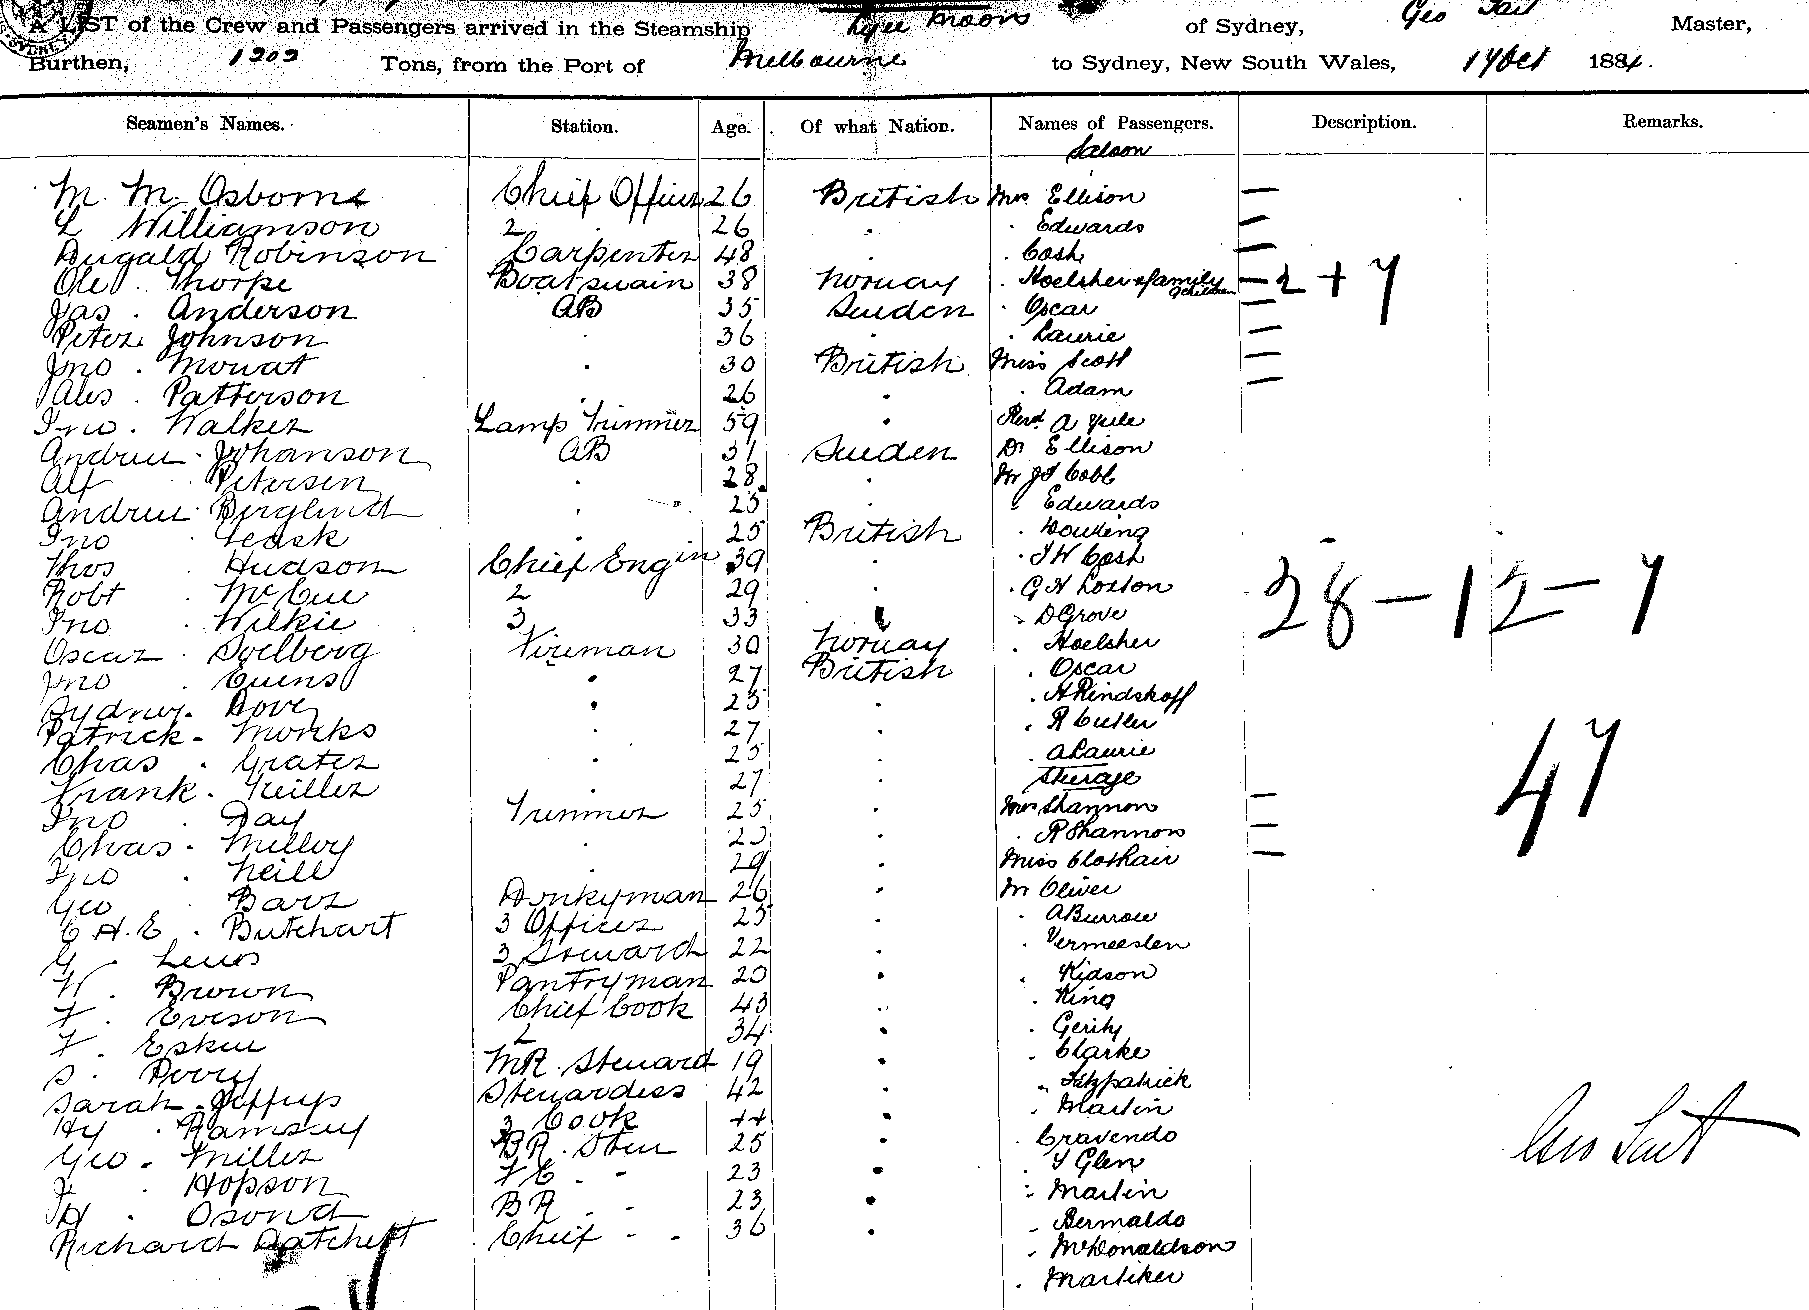 A LIST of the Crew and Passengers arrived in the Steamship Ly-ee Moon of Sydney, Geo Tait Master,
Burthen, 1202 Tons, from the Port of Melbourne to Sydney, New South Wales, 17 Oct 1884.
Seamen's Names. Station. Age. Of what Nation. Names of Passengers. Description. Remarks.
Saloon
M. M. Osborne Chief Officer 26 British Mrs Ellison —
L Williamson 2 26 . . Edwards —
Dugald Robinson Carpenter 48 . . Cosh —
Ole . Thorpe Boatswain 38 Norway . Hoelsher & family 7 children — 2 + 7
Jas . Anderson AB 35 Sweden . Oscar —
Peter Johnson . 36 . . Laurie —
Jno . Mouat . 30 British Miss Scott —
Alex . Patterson . 26 . . Adam —
Jno . Walker Lamp Trimmer 59 . Revd. A Yule
Andrew . Johanson AB 31 Sweden Dr Ellison
Alf Petersen . 28 . Mr J F Cobb
Andrew Berglund . 25 . Edwards
Jno . Leask 25 British . Dowling
Thos . Hudson Chief Engin 39 . . J W Cosh
Robt . McCue 2 29 . . G H Loxton
Jno . Wilkie 3 33 . . D Grove
28 — 12 — 7
Oscar . Soelberg Fireman 30 Norway . Hoelsher
Jno . Evens . 27 British . Oscar
Sydney . Dove . 25 . . A Rindskoff
Patrick . Monks 27 . . R Cutler
Chas . Grater . 25 . A Laurie
Frank . Neiller . 27 . Steerage
47
Jno . Day Trimmer 25 . Mrs Shannon —
Chas . Milloy . 25 . . R Shannon —
Jno . Neill . 29 . Miss Clothair —
Geo Barr Donkyman 26 . Mr Oliver
C H. E . Butchart 3 Officer 25 . . A Burrow
G . Lewis 3 Steward 22 . . Vermeeslen
W . Brown Pantryman 20 . . Kidson
F . Eveson Chief Cook 43 . . King
F . Eskew 2 34 . . Gerity
S . Perry MR. Steward 19 . . Clarke
Sarah . Jeffrys Stewardess 42 . . Fitzpatrick
Hy . Ramsey 3 Cook 44 . . Martin
Geo . Miller BR. Stew 25 . . Cravendo
. Hopson F C . - 23 . . Y Glen
. Osond BR . - 23 . . Martin
Richard Chief . - 36 . . Bermaldo
. McDonaldson
. Martiker
Geo Tait